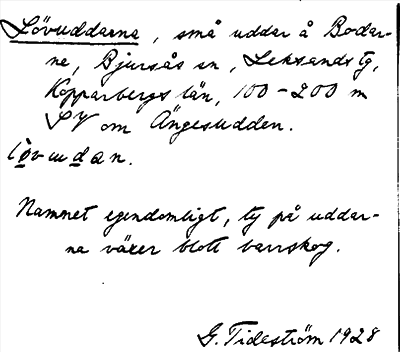 Lövuddarna, små uddar å Bodar-
ne, Bjursås sn, Leksands tg,
Kopparbergs län, 100-200 m
SV om Ängesudden.
lòvudan.
Namnet egendomligt, ty på uddar-
na växer blott barrskog.
G. Tideström 1928